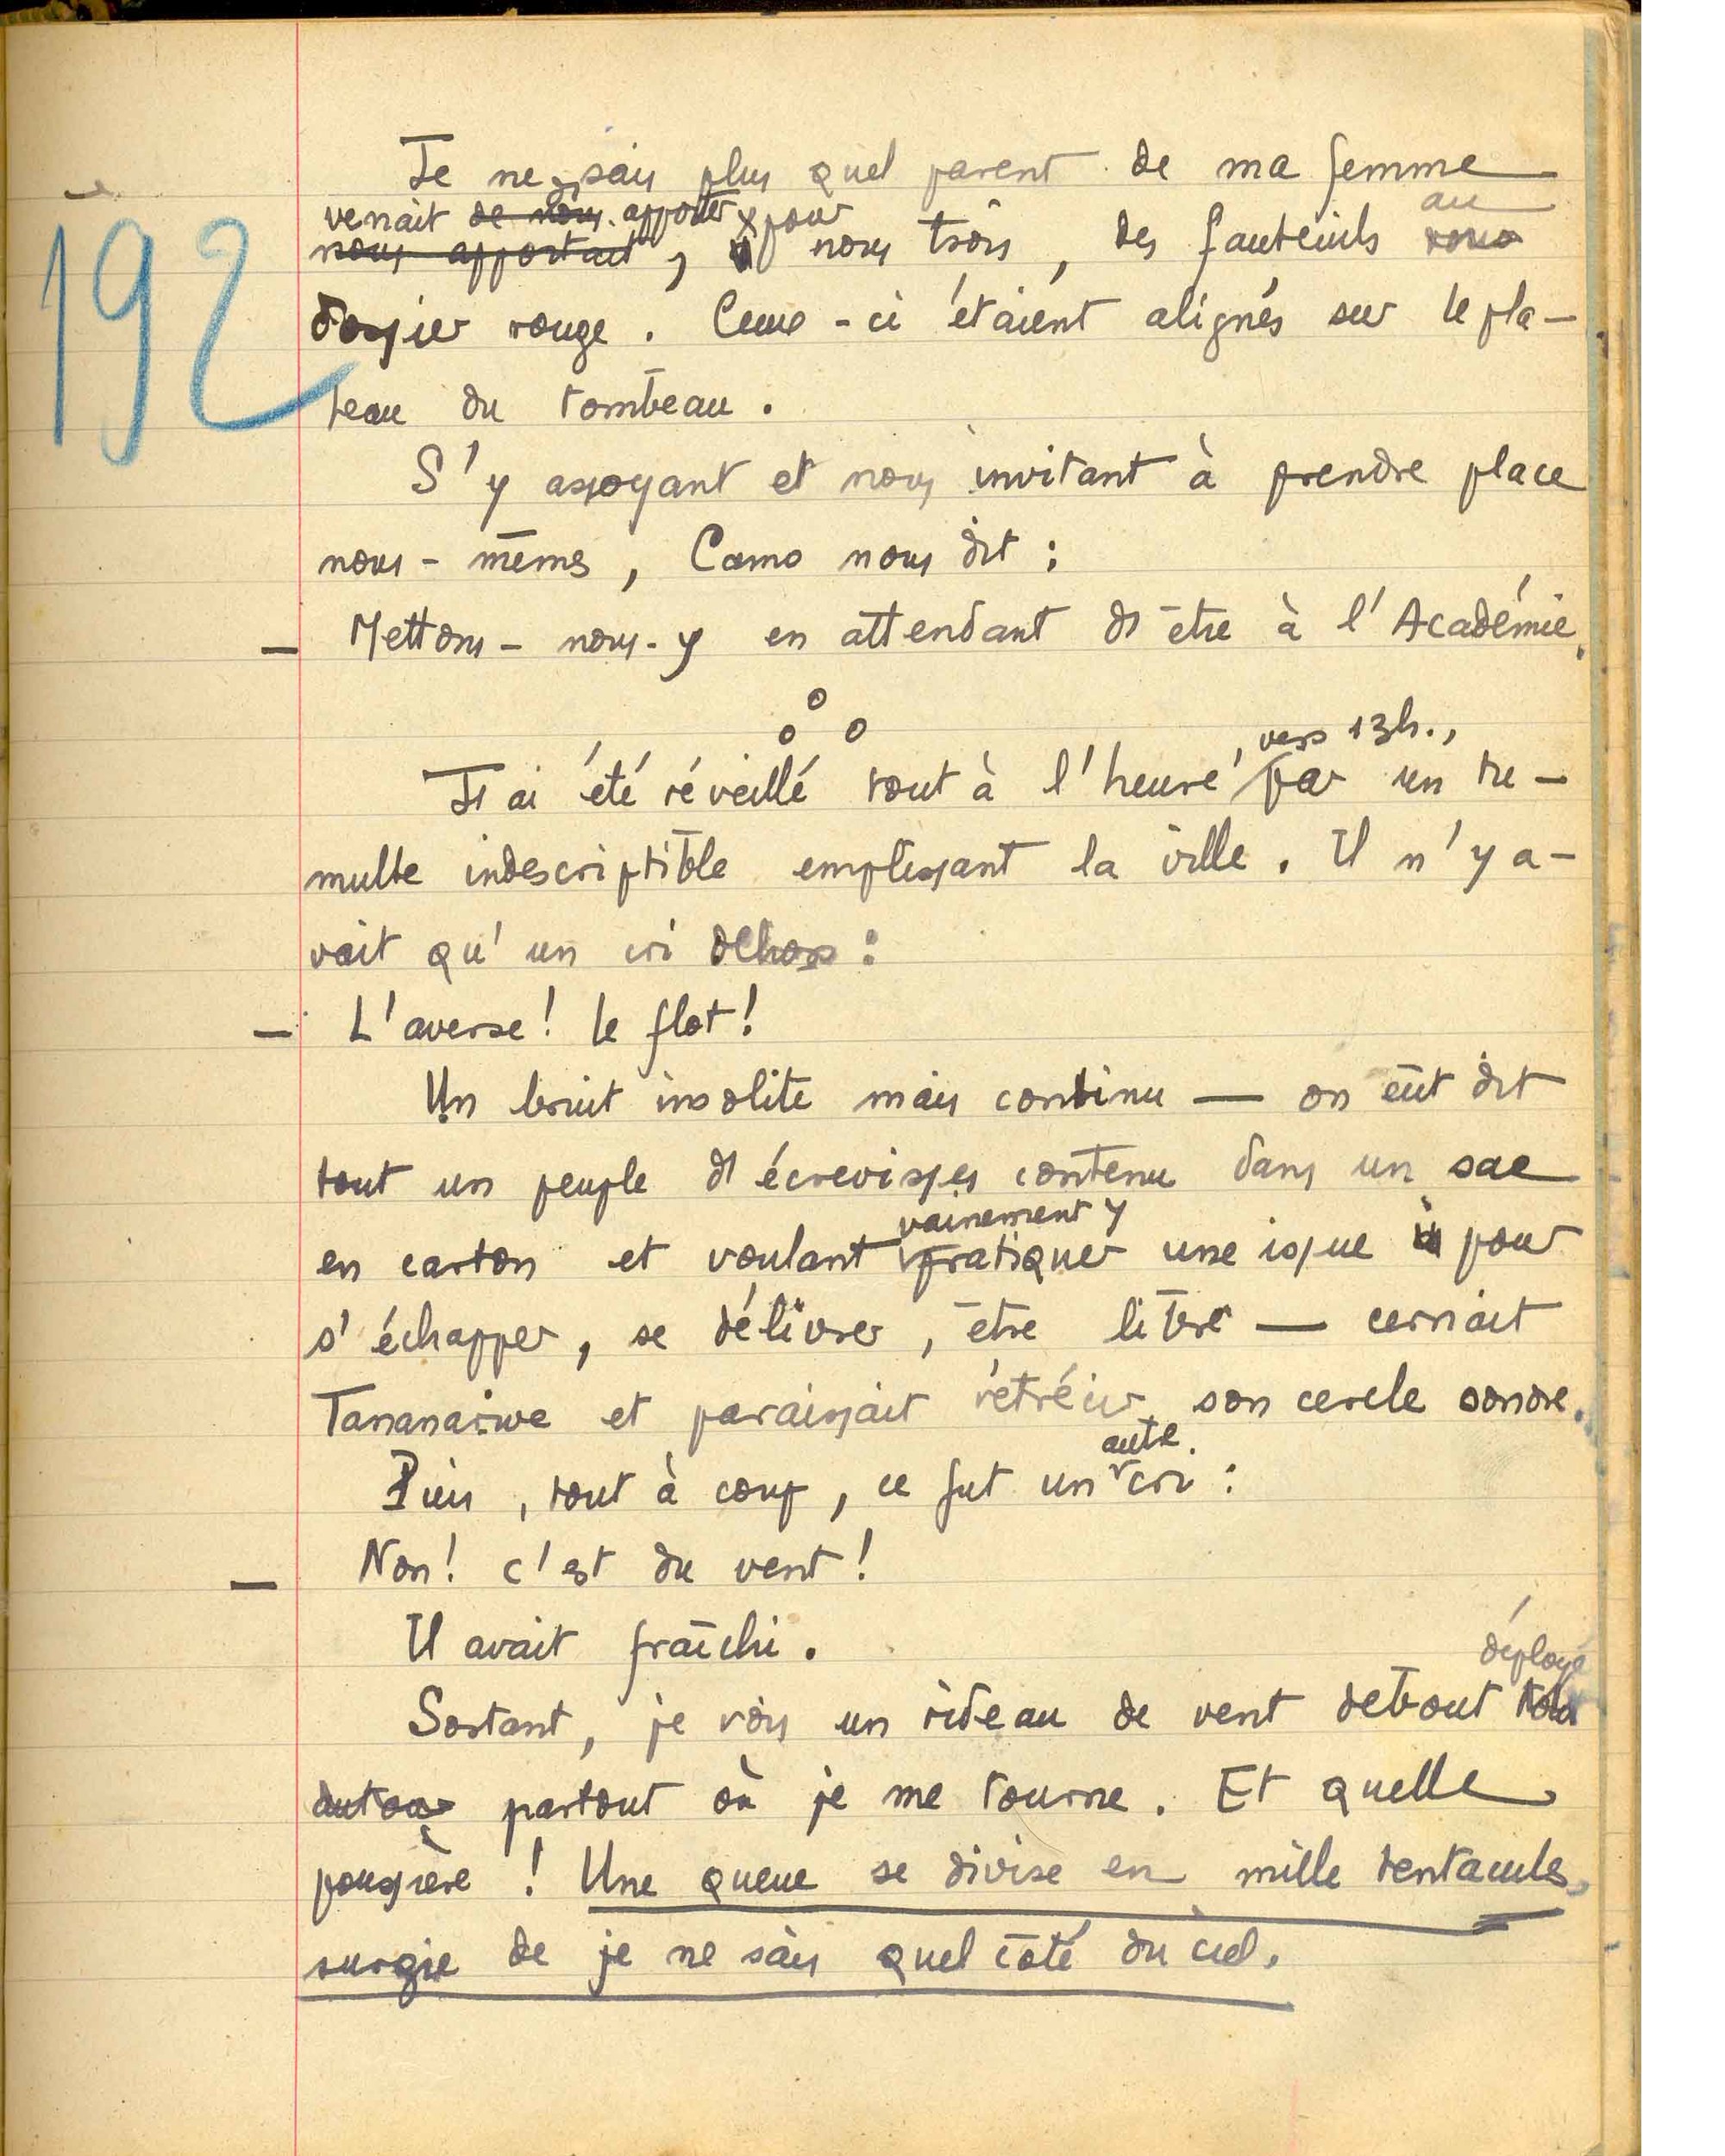 192
Je ne sais plus quel parent de ma femme
venait de nous apporter pour au
nous apportait, nous trois, des fauteuils
dossier rouge. Ceux-ci étaient alignés sur le pla-
teau du tombeau.
S'y assoyant et nous invitant à prendre place
nous-mêmes, Camo nous dit :
— Mettons-nous-y en attendant d'être à l'Académie.
o
o o
, vers 13h.,
J'ai été réveillé tout à l'heure par un tu-
multe indescriptible emplissant la ville. Il n'y a-
vait qu'un cri dehors :
— L'averse! le flot!
Un bruit insolite mais continu — on eût dit
tout un peuple d'écrevisses contenu dans un sac
vainement y
en carton et voulant pratiquer une issue pour
s'échapper, se délivrer, être libre — cernait
Tananarive et paraissait rétrécir son cercle sonore.
autre
Puis, tout à coup, ce fut un cri :
— Non! c'est du vent!
Il avait fraîchi.
déployé
Sortant, je vois un rideau de vent debout
autour partout où je me tourne. Et quelle
poussière ! Une queue se divise en mille tentacules,
surgie de je ne sais quel côté du ciel.